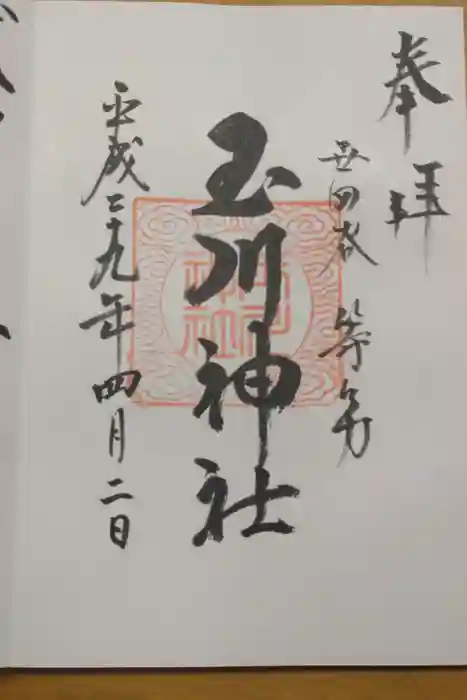 奉拝
世田谷 等々力
玉川神社
平成二十九年四月二日